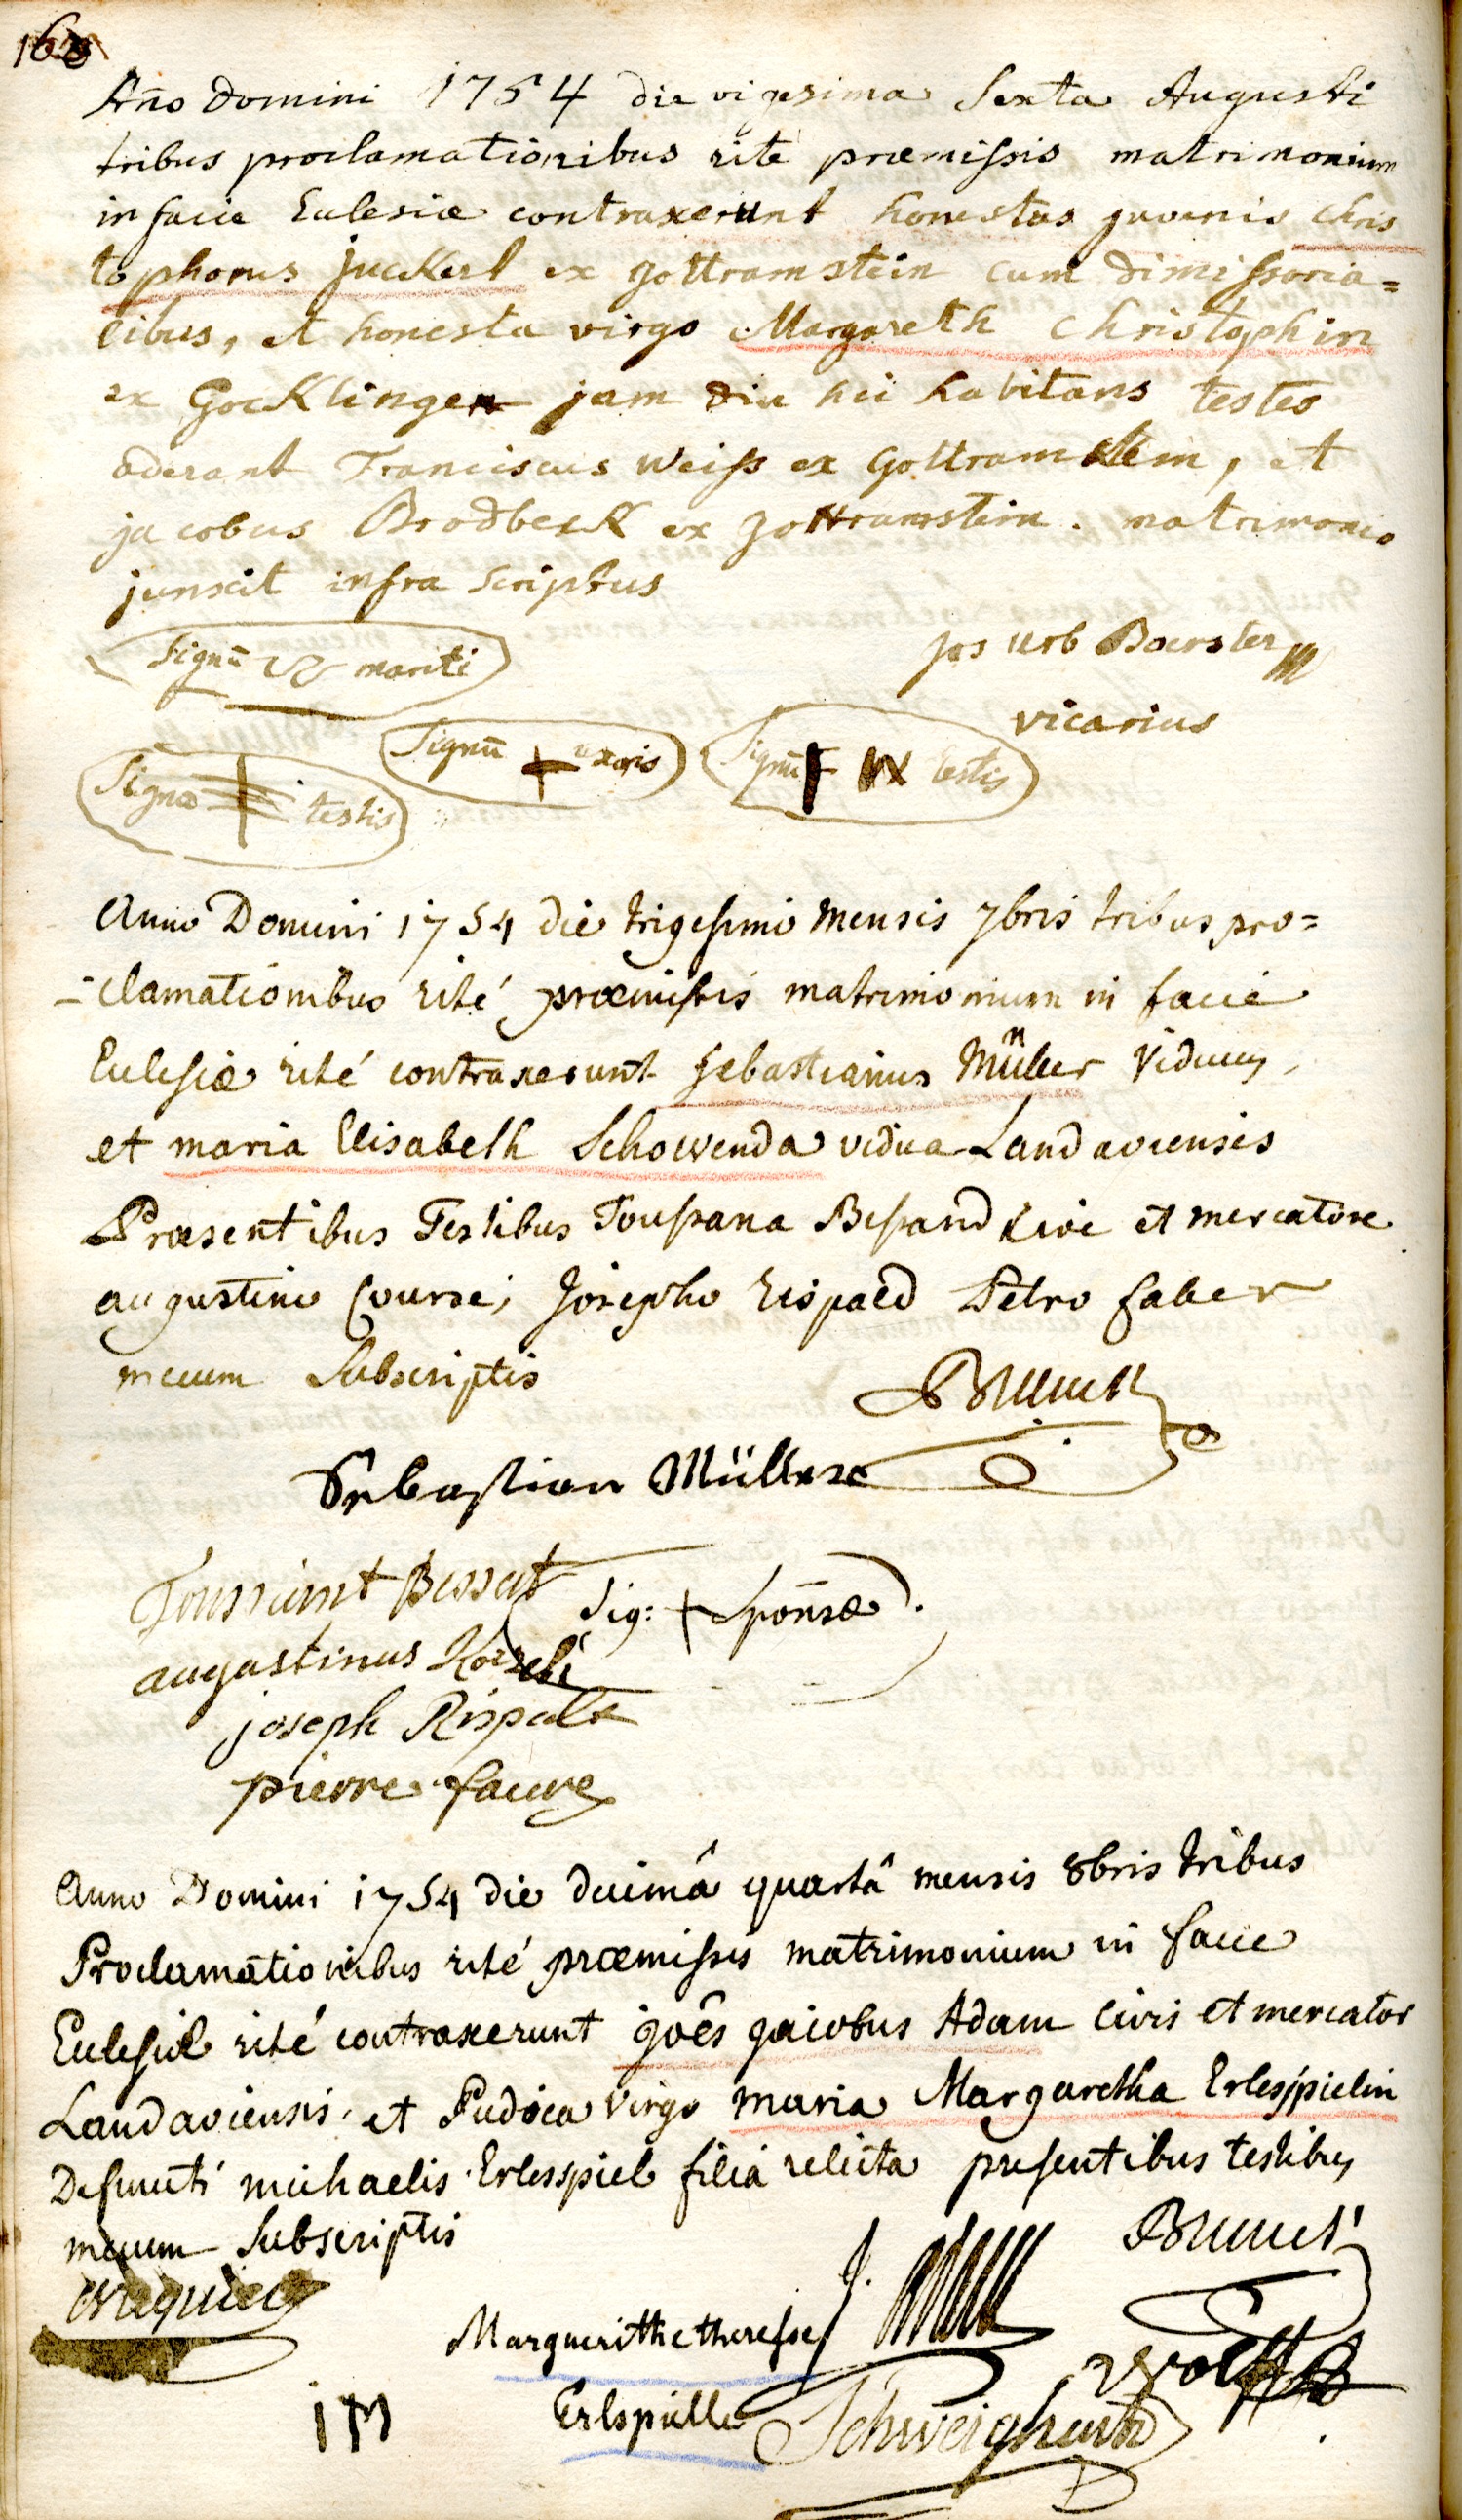 Año Domini 1754 die vigesima Sexta Augusti
tribus proclamationibus rite præmissis matrimonium
in facie Eclesiæ contraxerunt honestus juvenis Chris
tophorus juckert ex gottramstein cum dimissoria=
libus, et honesta virgo Margareth Christophin
ex Gocklingen jam diu hic habitans testes
aderant Franciscus Weiss ex Gottramstein, et
jacobus Brodbeck ex gottramstein. matrimonio
junxit infra scriptus
Jos Urb Boerster
vicarius
Signū mariti
Signū + uxoris
Signū testis
Signū testis
Anno Domini 1754 die trigesimo mensis 7bris tribus pro=
=clamationibus rité præmissis matrimonium in facie
Eclesiæ rité contraxerunt sebastianus Müller Viduus,
et maria Elisabeth Schowenda vidua Landaviensis
Præsentibus Testibus Toussana Bessand Cive et mercatore
augustino Courze, Josepho Rispald Petro faber
mecum Subscriptis
Brunck
Sebastian Müller
Toussaint Bessat
Sig: + Sponsæ.
augustinus
joseph Rispal
pierre faure
Anno Domini 1754 die decimâ quartâ mensis 8bris tribus
Proclamationibus rité præmissis matrimonium in facie
Eclesiæ rité contraxerunt joês jacobus Adam Civis et mercator
Landaviensis, et Pudica Virgo maria Margaretha Erlesspielin
Defuncti michaelis Erlesspiel filia relicta presentibus testibus
mecum Subscriptis
Brunck
Marguerithe therese
Wolff
Erlspielle
Schweighart